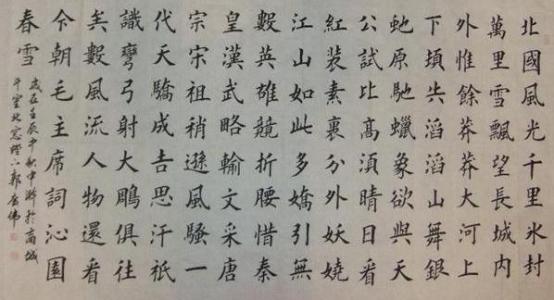 北國風光千里氷封
萬里雪飄望長城内
外惟餘莽莽大河上
下頃失滔滔山舞銀
虵原馳蠟象欲與天
公試比髙湏晴日看
紅裝素裹分外妖嬈
江山如此多嬌引無
數英雄競折腰惜秦
皇漢武略輸文采唐
宗宋祖稍遜風騷一
代天驕成吉思汗祇
識彎弓射大鵰俱往
矣數風流人物還看
今朝毛主席詞沁園
春雪
歲在壬辰年秋中澣於商城
北窓燈下郭